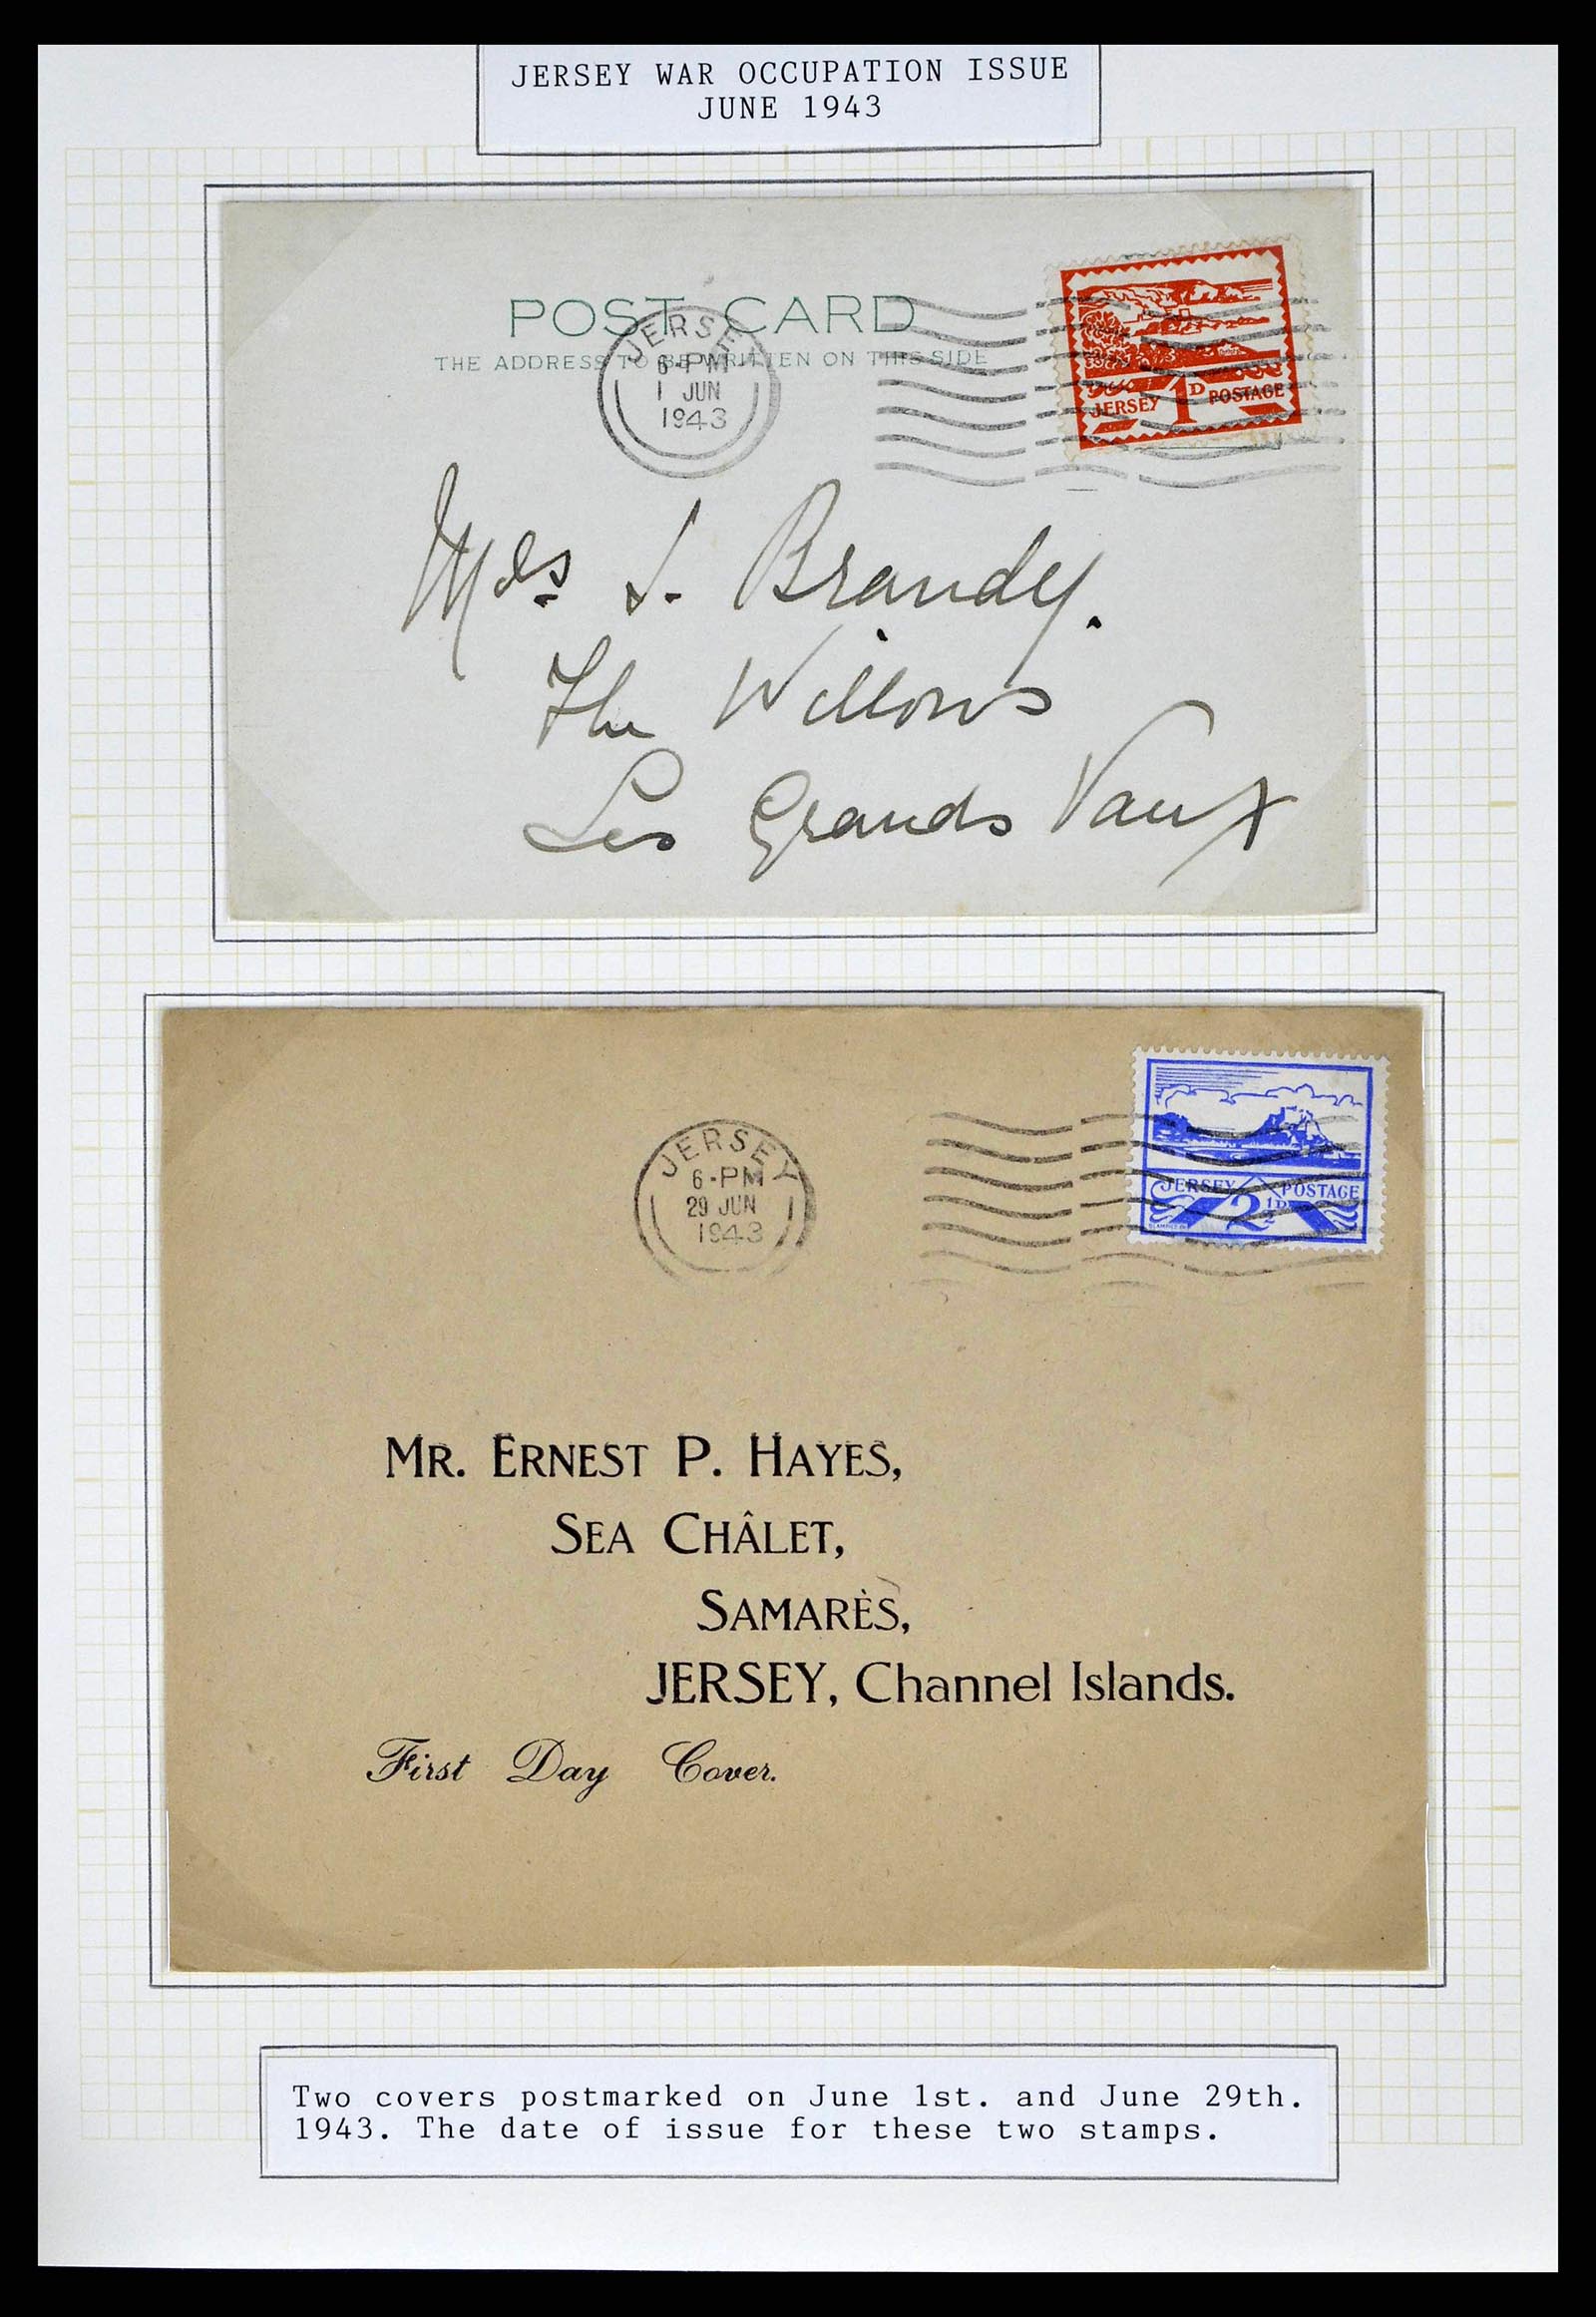 JERSEY WAR OCCUPATION ISSUE
JUNE 1943
POST CARD
THE ADDRESS TO BE WRITTEN ON THIS SIDE
JERSEY
6-PM
1 JUN
1943
JERSEY 1D POSTAGE
Mrs J. Brandy.
The Willows
Les Grands Vaux
JERSEY
6-PM
29 JUN
1943
JERSEY POSTAGE
2½D
MR. ERNEST P. HAYES,
SEA CHÂLET,
SAMARÈS,
JERSEY, Channel Islands.
First Day Cover.
Two covers postmarked on June 1st. and June 29th.
1943. The date of issue for these two stamps.